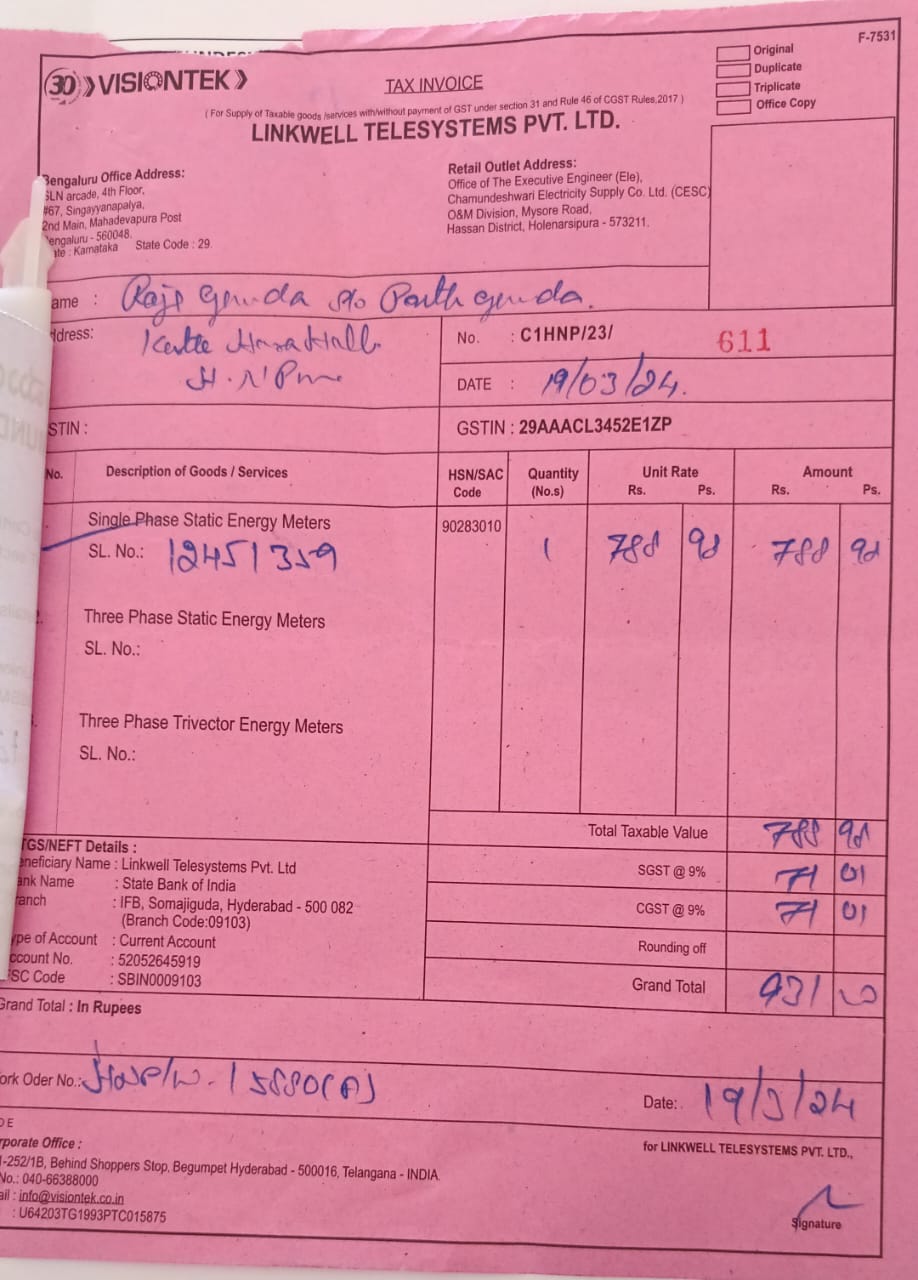 F-7531
30 VISIONTEK
TAX INVOICE
Original
Duplicate
Triplicate
Office Copy
( For Supply of Taxable goods /services with/without payment of GST under section 31 and Rule 46 of CGST Rules,2017 )
LINKWELL TELESYSTEMS PVT. LTD.
Bengaluru Office Address:
SLN arcade, 4th Floor,
#67, Singayyanapalya,
2nd Main, Mahadevapura Post
Bengaluru - 560048.
ate : Karnataka State Code : 29.
Retail Outlet Address:
Office of The Executive Engineer (Ele),
Chamundeshwari Electricity Supply Co. Ltd. (CESC)
O&M Division, Mysore Road,
Hassan District, Holenarsipura - 573211.
ame : Raje Gowda S/o Parth gowda.
ddress:
H.N Pura
No. : C1HNP/23/ 611
DATE : 19/03/24.
STIN :
GSTIN : 29AAACL3452E1ZP
No. Description of Goods / Services HSN/SAC Code Quantity (No.s) Unit Rate Rs. Ps. Amount Rs. Ps.
Single Phase Static Energy Meters 90283010
SL. No.: 12451359 1 788 98 788 98
2. Three Phase Static Energy Meters
SL. No.:
Three Phase Trivector Energy Meters
SL. No.:
Total Taxable Value 788 98
SGST @ 9% 71 01
CGST @ 9% 71 01
Rounding off
Grand Total 931 00
TGS/NEFT Details :
eneficiary Name : Linkwell Telesystems Pvt. Ltd
ank Name : State Bank of India
ranch : IFB, Somajiguda, Hyderabad - 500 082
(Branch Code:09103)
ype of Account : Current Account
ccount No. : 52052645919
SC Code : SBIN0009103
Grand Total : In Rupees
ork Oder No.: 15880(A)
Date: 19/3/24
DE
rporate Office :
1-252/1B, Behind Shoppers Stop, Begumpet Hyderabad - 500016, Telangana - INDIA.
No.: 040-66388000
ail : info@visiontek.co.in
: U64203TG1993PTC015875
for LINKWELL TELESYSTEMS PVT. LTD.,
Signature